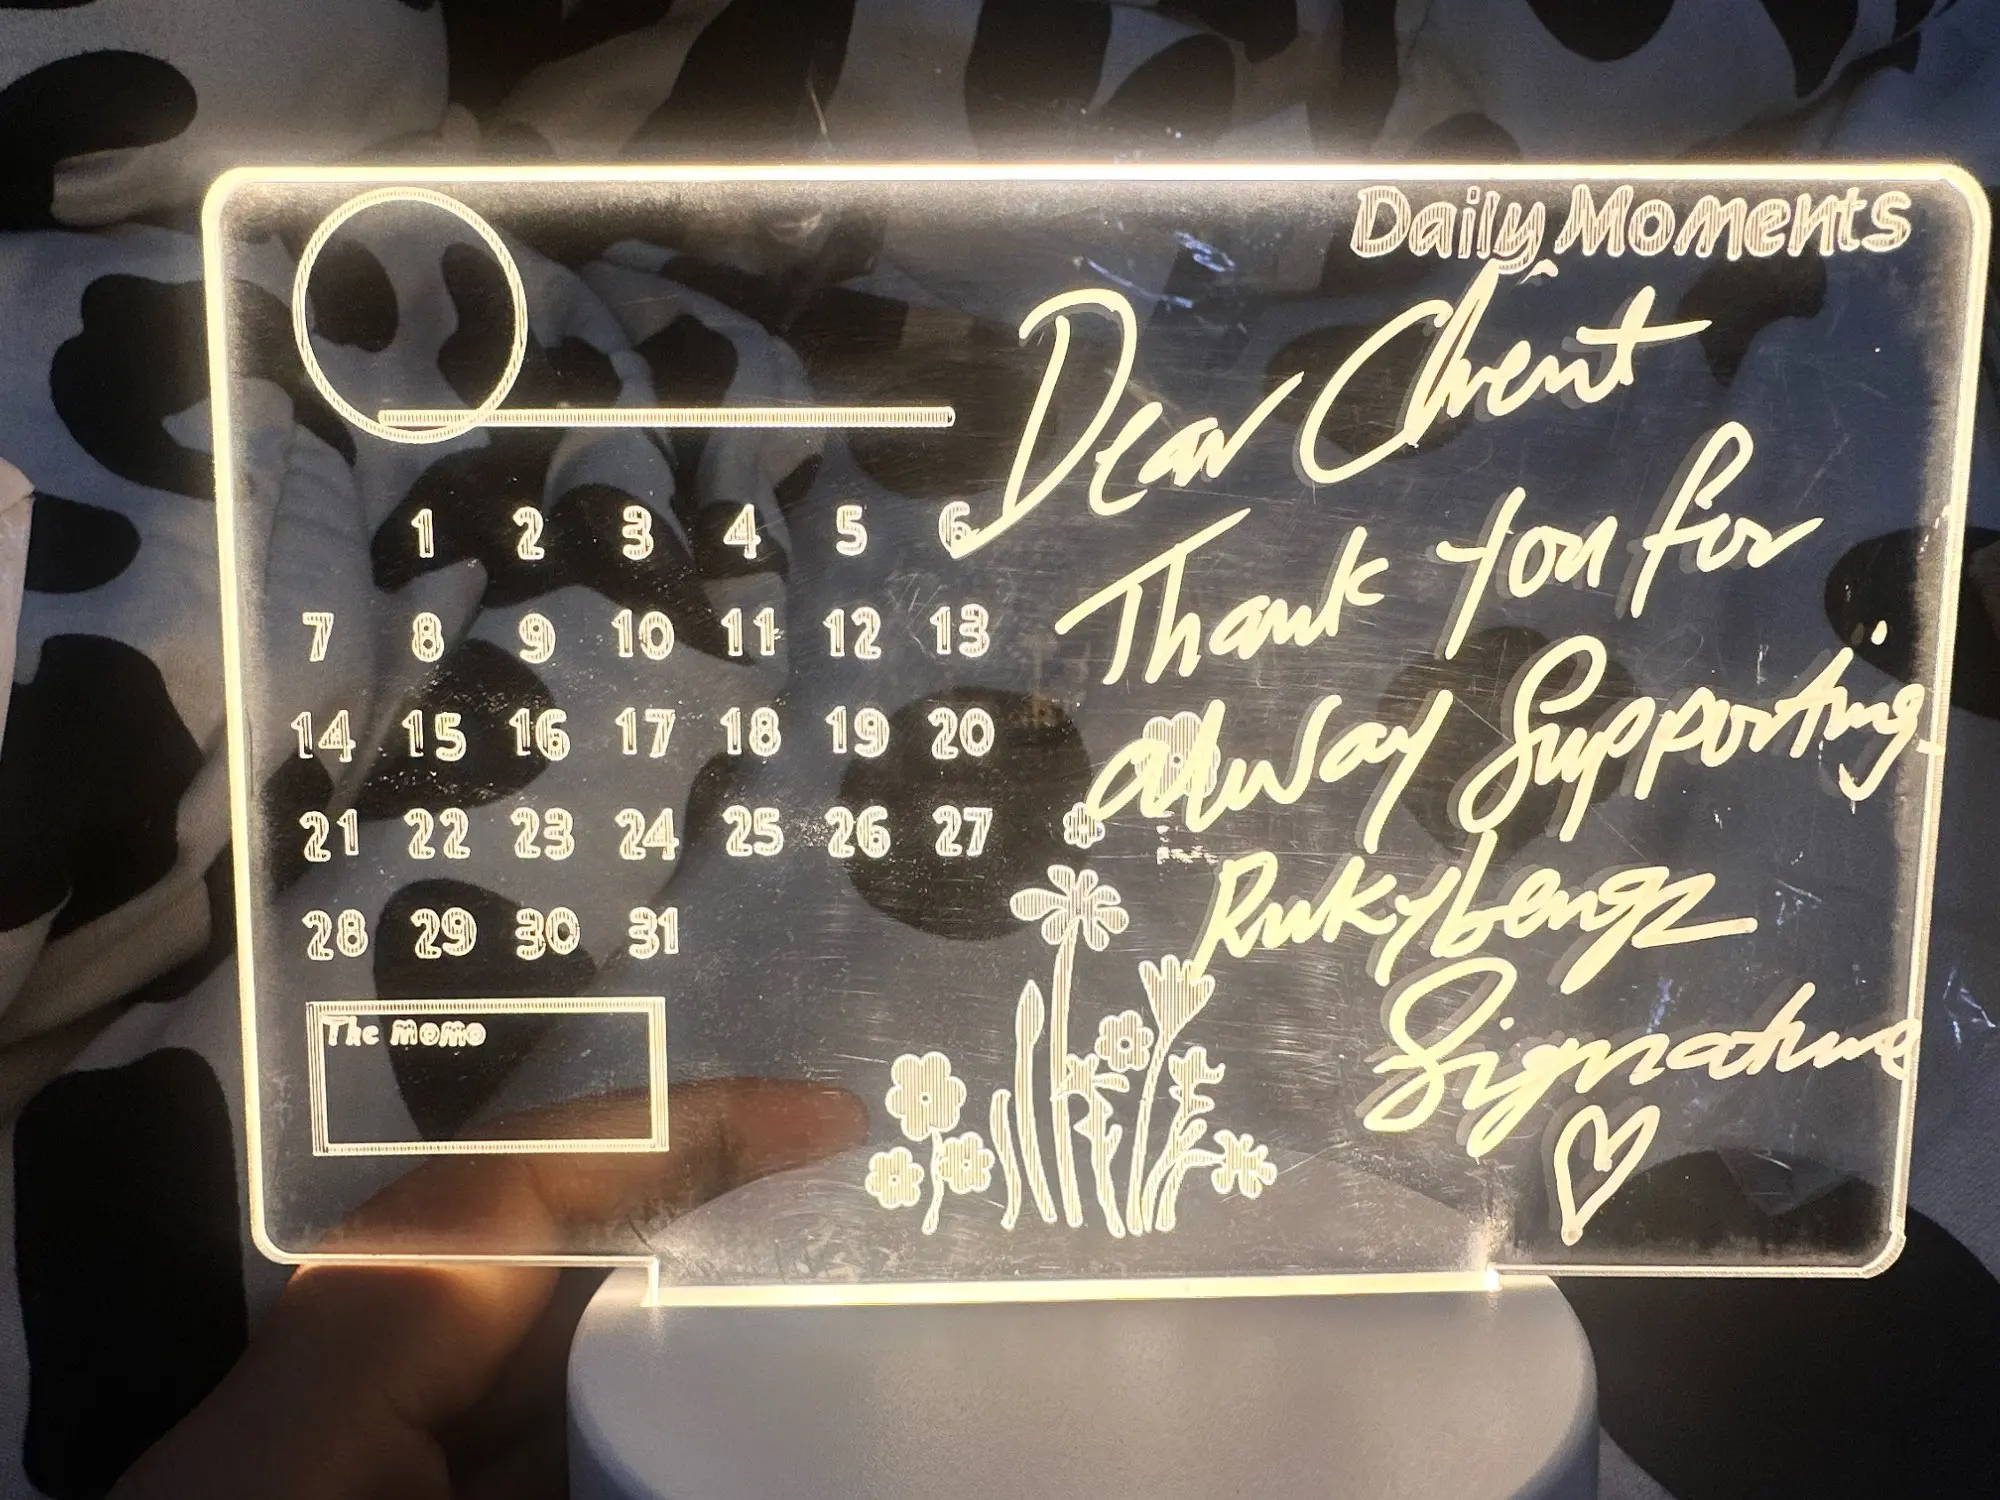 Daily Moments
Dear Client
Thank you for
alway Supporting
Rukybengz
Signature
1 2 3 4 5 6
7 8 9 10 11 12 13
14 15 16 17 18 19 20
21 22 23 24 25 26 27
28 29 30 31
The momo